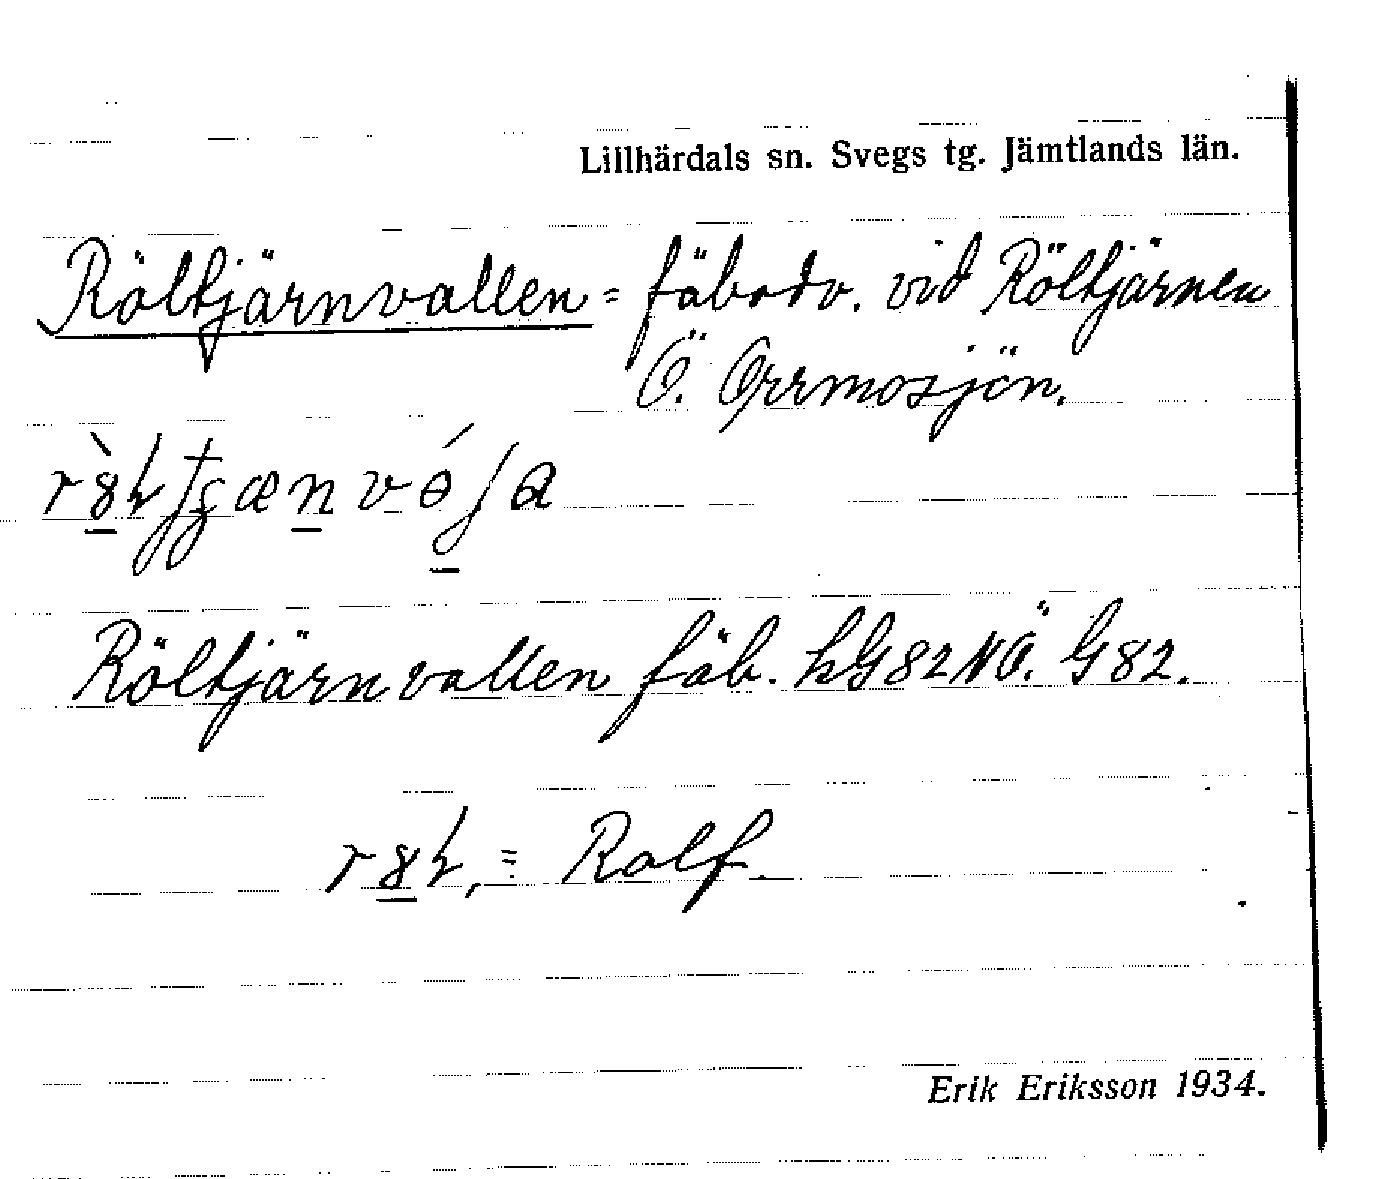 Lillhärdals sn. Svegs tg. Jämtlands län.
Röltjärnvallen = fäbodv. vid Röltjärnen
Ö. Orrmosjön.
Röltjärnvallen fäb. hG82NÖ. G82.
= Rolf.
Erik Eriksson 1934.